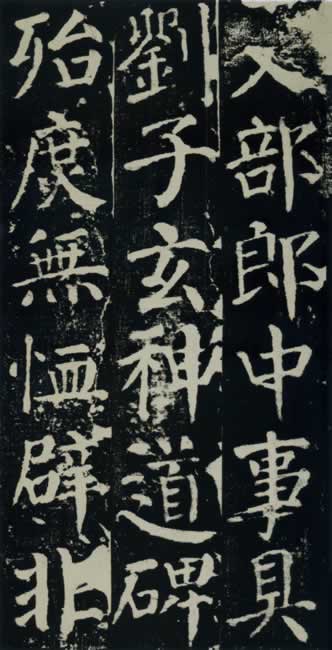 吏部郎中事具
劉子玄神道碑
殆庶無恤辟非